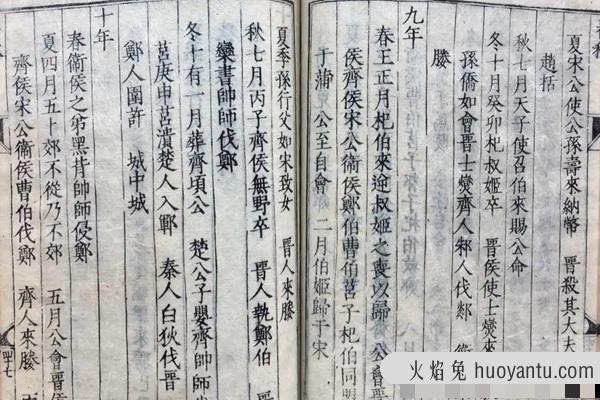 夏宋公使公孫壽來納幣　晉殺其大夫
趙括
秋七月天子使召伯來賜公命
冬十月癸卯杞叔姬卒　晉侯使士燮來
孫僑如會晉士燮齊人邾人伐郯　衛
媵
九年
春王正月杞伯來逆叔姬之喪以歸　公會晉
侯齊侯宋公衛侯鄭伯曹伯莒子杞伯同盟
于蒲　公至自會　二月伯姬歸于宋
夏季孫行父如宋致女　晉人來媵
秋七月丙子齊侯無野卒　晉人執鄭伯
欒書帥師伐鄭
冬十有一月葬齊頃公　楚公子嬰齊帥師
莒庚申莒潰楚人入鄆　秦人白狄伐晉
鄭人圍許　城中城
十年
春衛侯之弟黑背帥師侵鄭
夏四月五卜郊不從乃不郊　五月公會晉
齊侯宋公衛侯曹伯伐鄭　齊人來媵
四十七
火焰兔 huoyantu.com